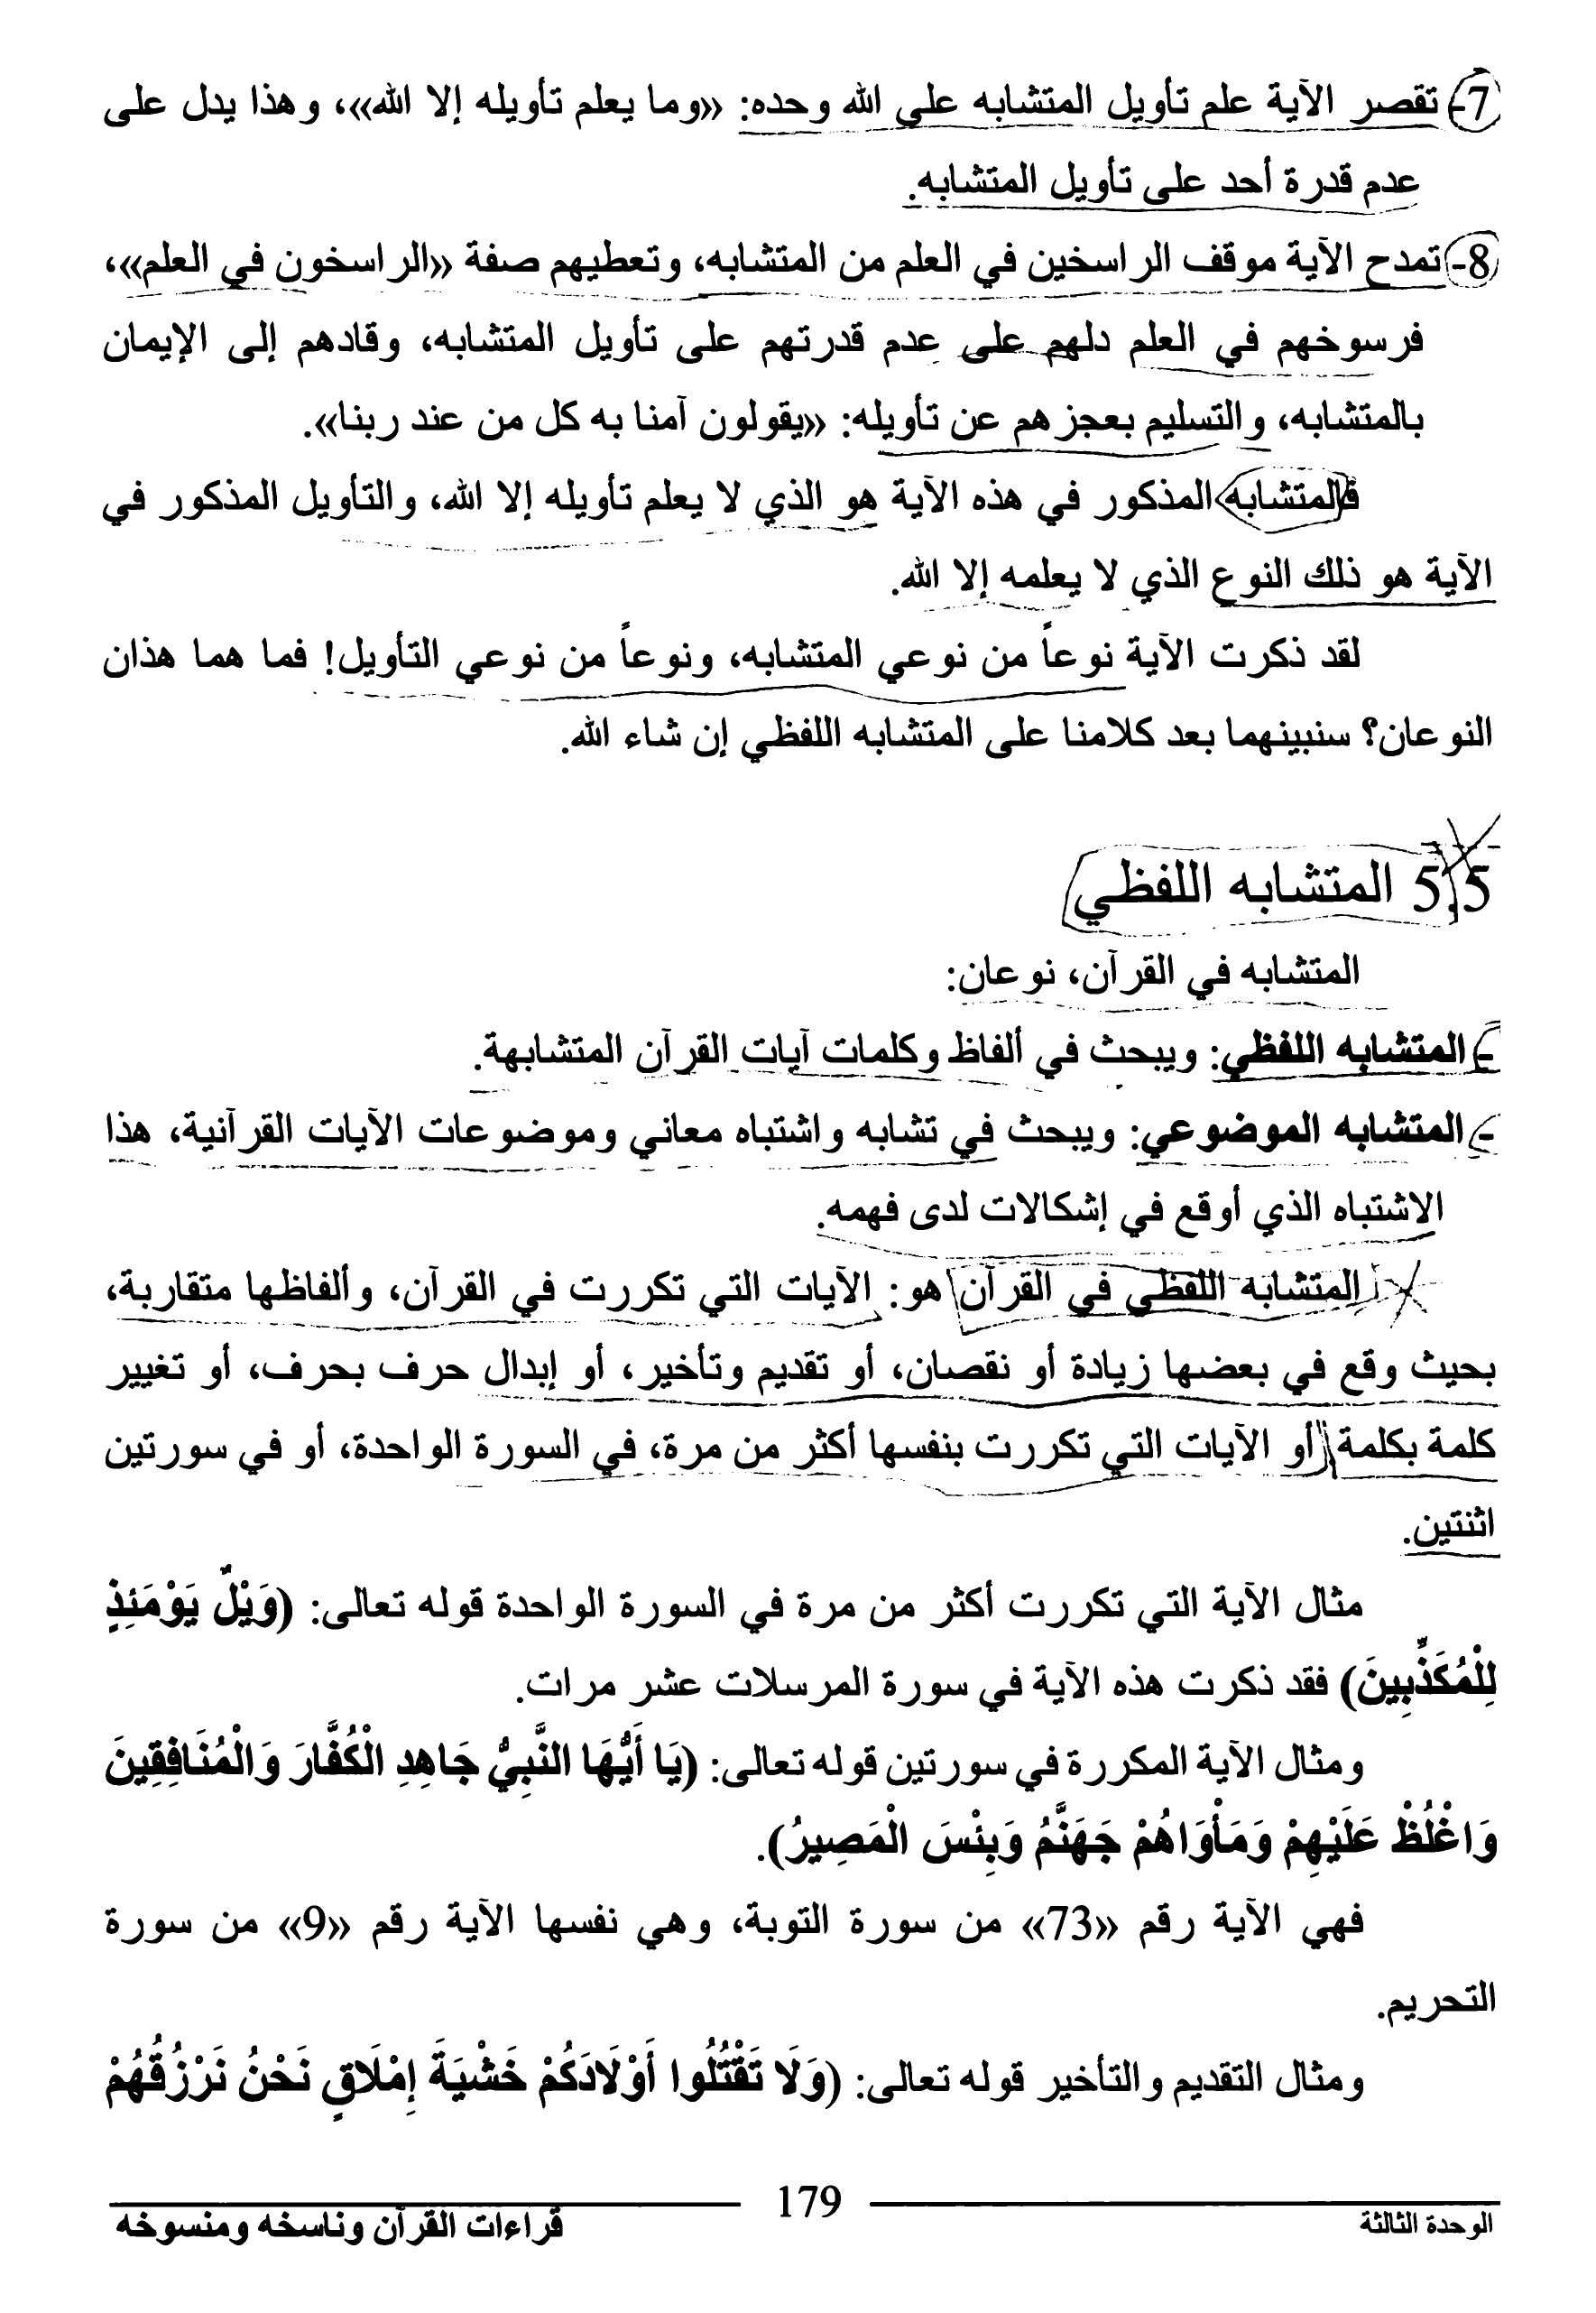 7- تقصر الآية علم تأويل المتشابه على الله وحده: «وما يعلم تأويله إلا الله»، وهذا يدل على
عدم قدرة أحد على تأويل المتشابه.
8- تمدح الآية موقف الراسخين في العلم من المتشابه، وتعطيهم صفة «الراسخون في العلم»،
فرسوخهم في العلم دلهم على عدم قدرتهم على تأويل المتشابه، وقادهم إلى الإيمان
بالمتشابه، والتسليم بعجزهم عن تأويله: «يقولون آمنا به كل من عند ربنا».
فالمتشابه المذكور في هذه الآية هو الذي لا يعلم تأويله إلا الله، والتأويل المذكور في
الآية هو ذلك النوع الذي لا يعلمه إلا الله.
لقد ذكرت الآية نوعاً من نوعي المتشابه، ونوعاً من نوعي التأويل! فما هما هذان
النوعان؟ سنبينهما بعد كلامنا على المتشابه اللفظي إن شاء الله.
5.5 المتشابه اللفظي
المتشابه في القرآن، نوعان:
- المتشابه اللفظي: ويبحث في ألفاظ وكلمات آيات القرآن المتشابهة.
- المتشابه الموضوعي: ويبحث في تشابه واشتباه معاني وموضوعات الآيات القرآنية، هذا
الاشتباه الذي أوقع في إشكالات لدى فهمه.
المتشابه اللفظي في القرآن هو: الآيات التي تكررت في القرآن، وألفاظها متقاربة،
بحيث وقع في بعضها زيادة أو نقصان، أو تقديم وتأخير، أو إبدال حرف بحرف، أو تغيير
كلمة بكلمة أو الآيات التي تكررت بنفسها أكثر من مرة، في السورة الواحدة، أو في سورتين
اثنتين.
مثال الآية التي تكررت أكثر من مرة في السورة الواحدة قوله تعالى: (وَيْلٌ يَوْمَئِذٍ
لِلْمُكَذِّبِينَ) فقد ذكرت هذه الآية في سورة المرسلات عشر مرات.
ومثال الآية المكررة في سورتين قوله تعالى: (يَا أَيُّهَا النَّبِيُّ جَاهِدِ الْكُفَّارَ وَالْمُنَافِقِينَ
وَاغْلُظْ عَلَيْهِمْ وَمَأْوَاهُمْ جَهَنَّمُ وَبِئْسَ الْمَصِيرُ).
فهي الآية رقم «73» من سورة التوبة، وهي نفسها الآية رقم «9» من سورة
التحريم.
ومثال التقديم والتأخير قوله تعالى: (وَلَا تَقْتُلُوا أَوْلَادَكُمْ خَشْيَةَ إِمْلَاقٍ نَحْنُ نَرْزُقُهُمْ
الوحدة الثالثة 179 قراءات القرآن وناسخه ومنسوخه